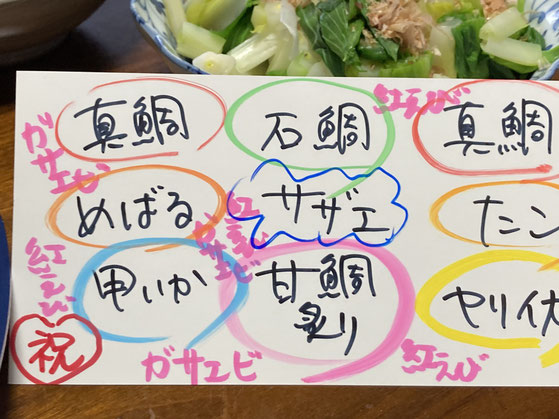 真鯛
石鯛
紅えび
真鯛
ガサエビ
めばる
サザエ
ガサエビ
タコ
紅えび
甲いか
甘鯛
炙り
ヤリイカ
祝
ガサエビ
紅えび